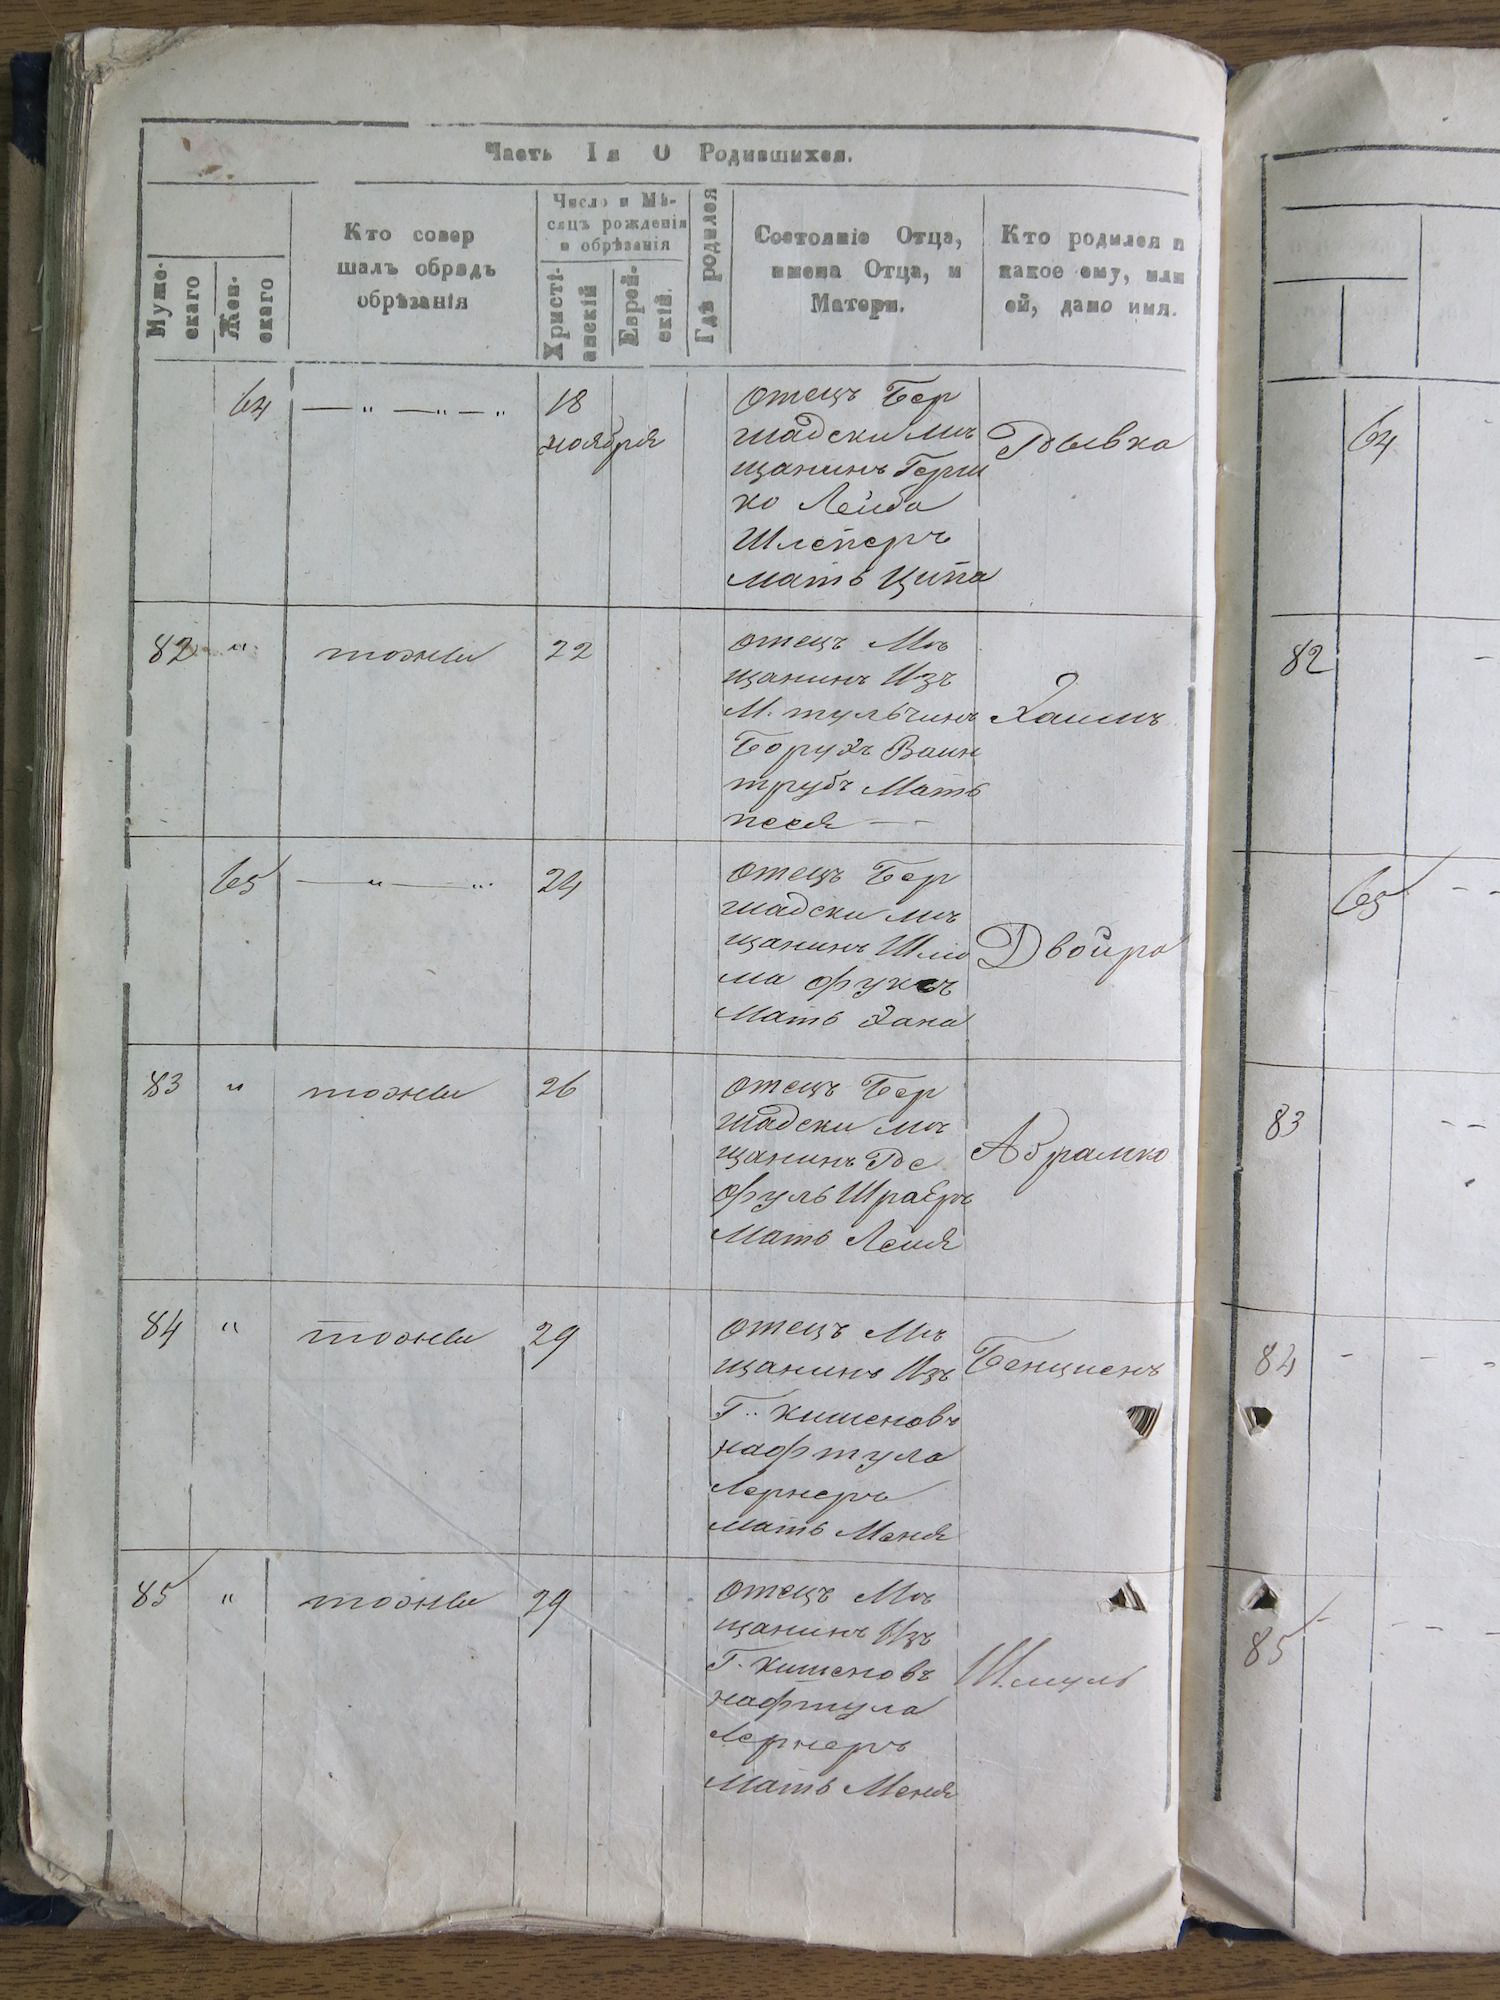 Часть Iя О Родившихся.
Муже-
скаго
Жен-
скаго
Кто совер
шалъ обрядъ
обрѣзанія
Число и Мѣ-
сяцъ рожденія
и обрѣзанія
Христі-
анскій
Еврей-
скій.
Гдѣ родился
Состояніе Отца,
имена Отца, и
Матери.
Кто родился и
какое ему, или
ей, дано имя.
64 — " — " — "
18
ноября
отецъ Бер
шадски мѣ
щанинъ Герш
ко Лейба
Шлеперъ
мать Ципа
Рывка
82 " тожеы 22
отецъ Мѣ
щанинъ Изъ
М. тульчинъ
Борухъ Ваин
трубъ Мать
песя —
Хаимъ
65 — " — "
24
отецъ Бер
шадски мѣ
щанинъ Шлио
ма фуксъ
Мать Хана
Двойра
83 " тожеы 26
отецъ Бер
шадски мѣ
щанинъ Ре
фуль Шраеръ
Мать Лея
Абрамко
84 " тожеы 29
отецъ Мѣ
щанинъ Изъ
Г. кишеновъ
нафтула
Лернеръ
мать Меня
Бенционъ
85 " тожеы 29
отецъ Мѣ
щанинъ Изъ
Г. кишеновъ
нафтула
Лернеръ
Мать Меня
Шмуль
64
82 -
65 - -
83 - -
84 - - -
85 - - -